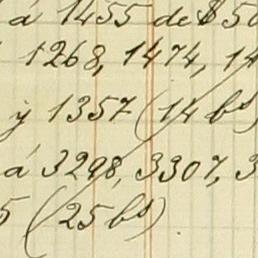 á 1455 de $50
1268, 1474, 14
y 1357 (14 bs)
á 3298, 3307, 3
5 (25 bs)